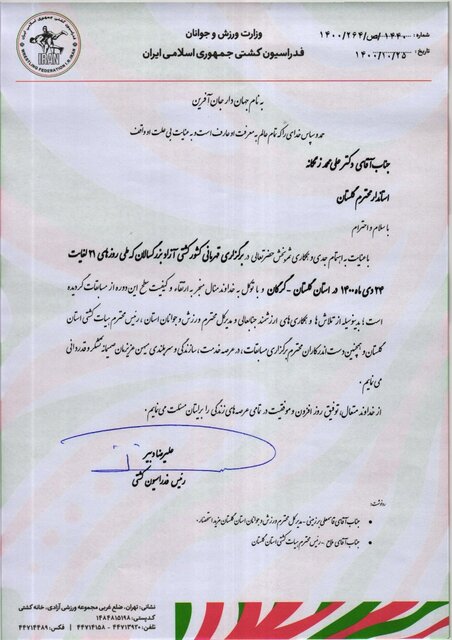 وزارت ورزش و جوانان
فدراسیون کشتی جمهوری اسلامی ایران
شماره : ۱۴۴۰۰/ص/۱۴۰۰/۲۶۴
تاریخ : ۱۴۰۰/۱۰/۲۵
WRESTLING FEDERATION I.R. IRAN
IRAN
به نام جهان دار جان آفرین
حمد و سپاس خدای را که تمام عالم به معرفت او عارف است و به عنایات بی علت او واقف
جناب آقای دکتر علی محمد زنگانه
استاندار محترم گلستان
با سلام و احترام
با عنایت به اهتمام جدی و همکاری ثمربخش حضرتعالی در برگزاری قهرمانی کشور کشتی آزاد بزرگسالان که طی روزهای ۲۱ لغایت
۲۴ دی ماه ۱۴۰۰ در استان گلستان - گرگان و با توکل به خداوند متعال منجر به ارتقاء و کیفیت سطح این دوره از مسابقات گردیده
است؛ بدینوسیله از تلاش ها و همکاری های ارزشمند جنابعالی و مدیرکل محترم ورزش و جوانان استان ، رئیس محترم هیات کشتی استان
گلستان و همچنین دست اندرکاران محترم برگزاری مسابقات، در عرصه خدمت، سازندگی و سربلندی میهن عزیزمان صمیمانه تشکر و قدردانی
می نمایم .
از خداوند متعال، توفیق روز افزون و موفقیت در تمامی عرصه های زندگی را برایتان مسئلت می نمایم .
علیرضا دبیر
رئیس فدراسیون کشتی
رونوشت:
جناب آقای قاسمعلی برزمینی - مدیرکل محترم ورزش و جوانان استان گلستان مزید استحضار.
جناب آقای فلاح - رئیس محترم هیات کشتی استان گلستان
نشانی: تهران، ضلع غربی مجموعه ورزشی آزادی، خانه کشتی
کدپستی: ۱۴۸۴۸۱۵۱۹۸
تلفن: ۴۴۷۱۳۹۲۰ - ۴۴۷۱۴۱۵۸ | فکس: ۴۴۷۱۴۴۸۹